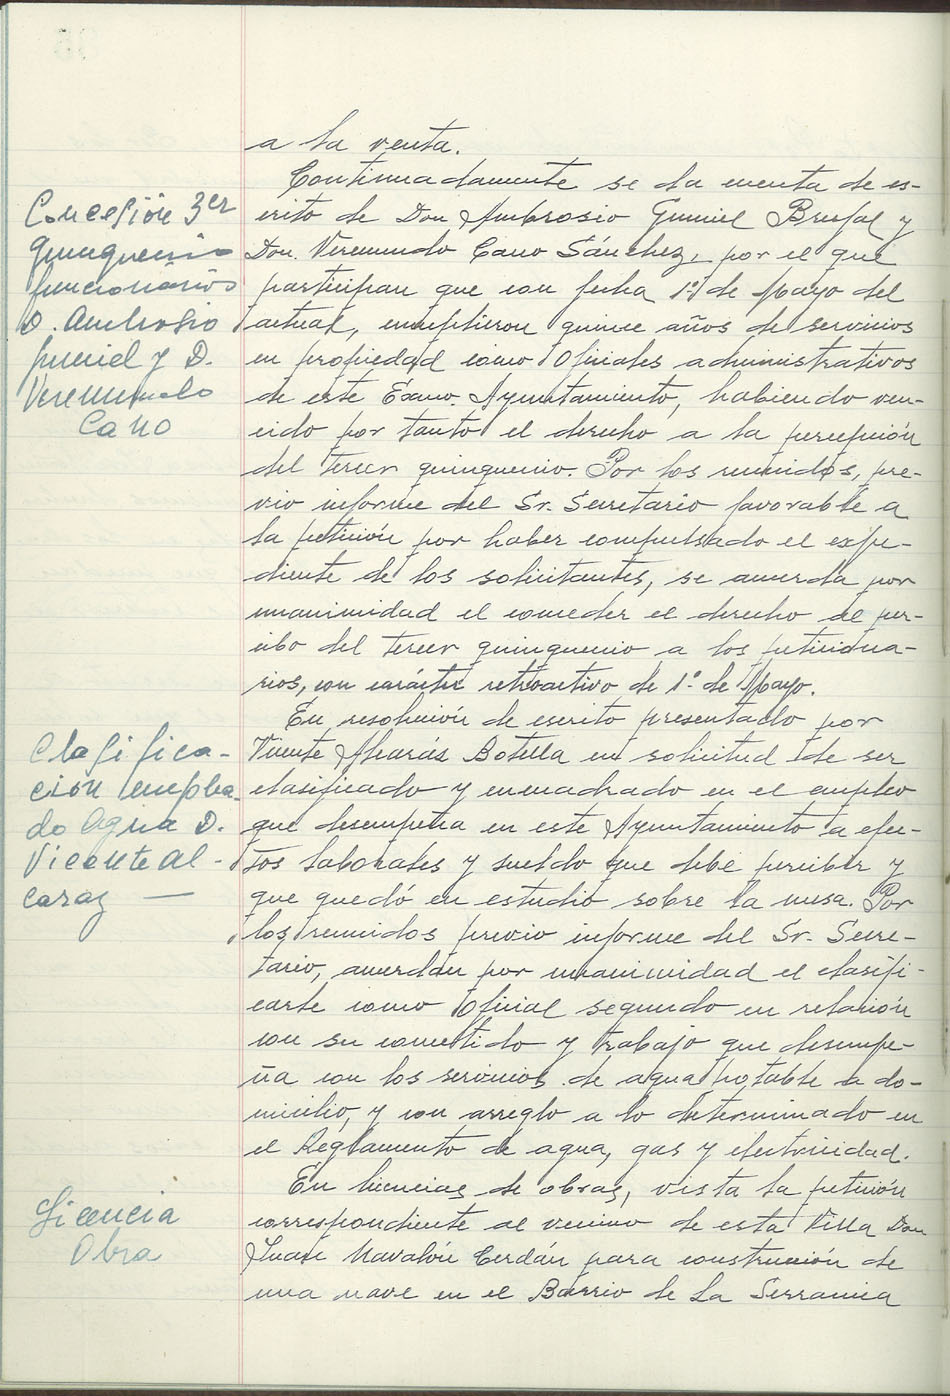 a la venta.
Continuadamente se da cuenta de es-
Concesión 3er
crito de Don Ambrosio Gumiel Brufal y
quinquenio
Don. Veremundo Cano Sánchez, por el que
funcionarios
participan que con fecha 1º de Mayo del
D. Ambrosio
actual, cumplieron quince años de servicios
Gumiel y D.
en propiedad como Oficiales administrativos
Veremundo
de este Excmo. Ayuntamiento, habiendo ven-
Cano
cido por tanto el derecho a la percepción
del tercer quinquenio. Por los reunidos, pre-
vio informe del Sr. Secretario favorable a
la petición por haber compulsado el expe-
diente de los solicitantes, se acuerda por
unanimidad el conceder el derecho al per-
cibo del tercer quinquenio a los peticiona-
rios, con carácter retroactivo de 1º de Mayo.
En resolución de escrito presentado por
Clasifica-
Vicente Botella en solicitud de ser
ción emplea-
clasificado y encuadrado en el empleo
do Agua D.
que desempeña en este Ayuntamiento a efec-
Vicente Al-
tos laborales y sueldo que debe percibir y
caraz —
que quedó en estudio sobre la mesa. Por
los reunidos previo informe del Sr. Secre-
tario, acuerdan por unanimidad el clasifi-
carle como Oficial segundo en relación
con su cometido y trabajo que desempe-
ña con los servicios de agua potable a do-
micilio, y con arreglo a lo determinado en
el Reglamento de agua, gas y electricidad.
En licencias de obras, vista la petición
Licencia
correspondiente al vecino de esta Villa Don
Obra
Juan Navalón Cerdán para construcción de
una nave en el Barrio de La Serranica